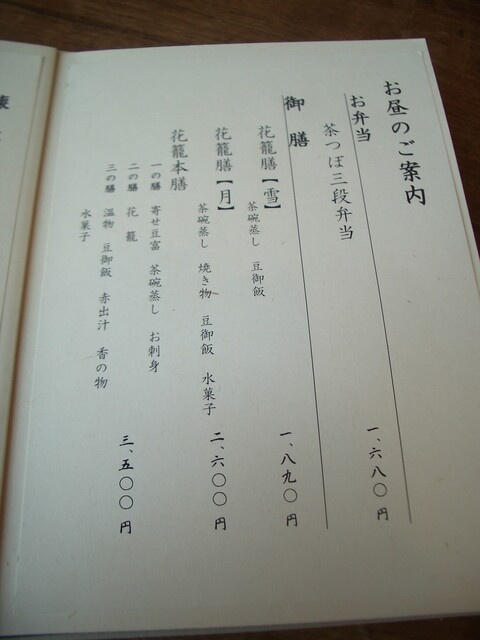 お昼のご案内
お弁当
茶つぼ三段弁当 一、六八〇円
御膳
花籠膳【雪】 一、八九〇円
茶碗蒸し 豆御飯
花籠膳【月】 二、六〇〇円
茶碗蒸し 焼き物 豆御飯 水菓子
花籠本膳 三、五〇〇円
一の膳 寄せ豆富 茶碗蒸し お刺身
二の膳 花籠
三の膳 温物 豆御飯 赤出汁 香の物
水菓子